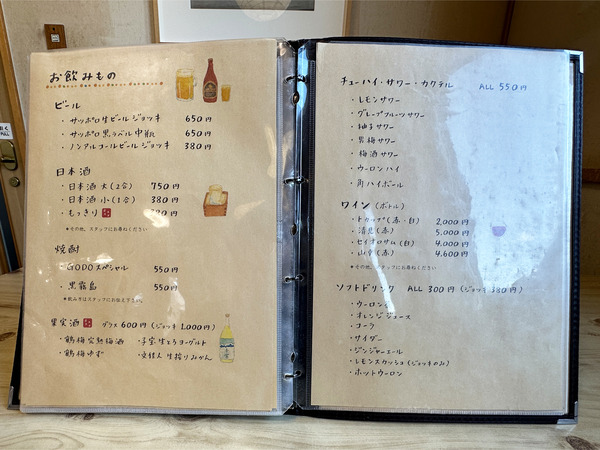 お飲みもの
ビール
・サッポロ生ビールジョッキ 650円
・サッポロ黒ラベル中瓶 650円
・ノンアルコールビールジョッキ 380円
日本酒
・日本酒 大(2合) 750円
・日本酒 小(1合) 380円
・もっきり
＊その他、スタッフにお尋ねください
焼酎
・GODOスペシャル 550円
・黒霧島 550円
＊飲み方はスタッフにお伝え下さい。
果実酒 グラス600円(ジョッキ1,000円)
・鶴梅完熟梅酒 ・子宝 生とろヨーグルト
・鶴梅ゆず ・文佳人 生搾りみかん
チューハイ・サワー・カクテル ALL 550円
・レモンサワー
・グレープフルーツサワー
・柚子サワー
・男梅サワー
・梅酒サワー
・ウーロンハイ
・角ハイボール
ワイン(ボトル)
・トカップ(赤・白) 2,000円
・清見(赤) 5,000円
・セイオロサム(白) 4,000円
・山幸(赤) 4,600円
＊その他、スタッフにお尋ねください
ソフトドリンク ALL 300円(ジョッキ380円)
・ウーロン
・オレンジジュース
・コーラ
・サイダー
・ジンジャーエール
・レモンスカッシュ(ジョッキのみ)
・ホットウーロン